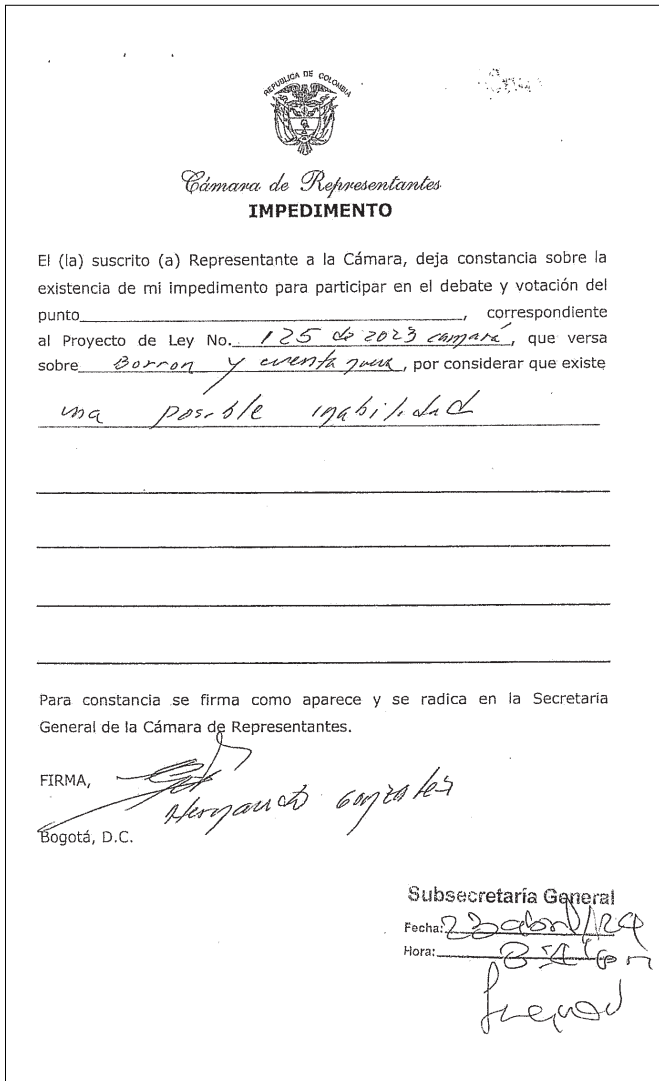 REPUBLICA DE COLOMBIA
Cámara de Representantes
IMPEDIMENTO
El (la) suscrito (a) Representante a la Cámara, deja constancia sobre la
existencia de mi impedimento para participar en el debate y votación del
punto______________________, correspondiente
al Proyecto de Ley No. 125 de 2023 camara, que versa
sobre Borron y cuenta nueva, por considerar que existe
una posible inabilidad
Para constancia se firma como aparece y se radica en la Secretaría
General de la Cámara de Representantes.
FIRMA,
Hernando Gonzalez
Bogotá, D.C.
Subsecretaría General
Fecha: 23 abril/24
Hora: